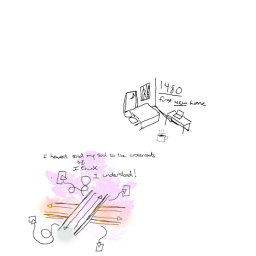 1480
first new home
I haven't sold my soul to the crossroads
yet
I think
I understood!